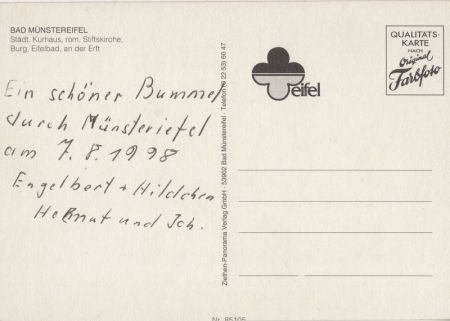 BAD MÜNSTEREIFEL
Städt. Kurhaus, rom. Stiftskirche,
Burg, Eifelbad, an der Erft
Ein schöner Bummel
durch Münsteriefel
am 7.8.1998
Engelbert + Hildchen
Helmut und Joh.
Ziethen-Panorama Verlag GmbH · 53902 Bad Münstereifel · Telefon (0 22 53) 60 47
eifel
QUALITÄTS-
KARTE
NACH
Original
Farbfoto
Nr. 85105